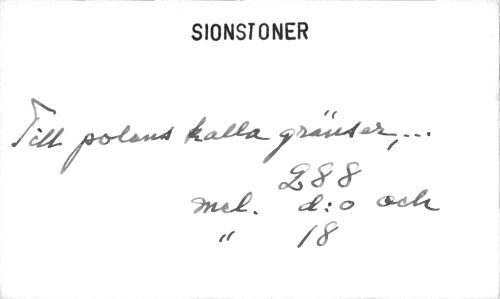 SIONSTONER
Till polens kalla gränser,...
L88
mel. d:o och
" 18